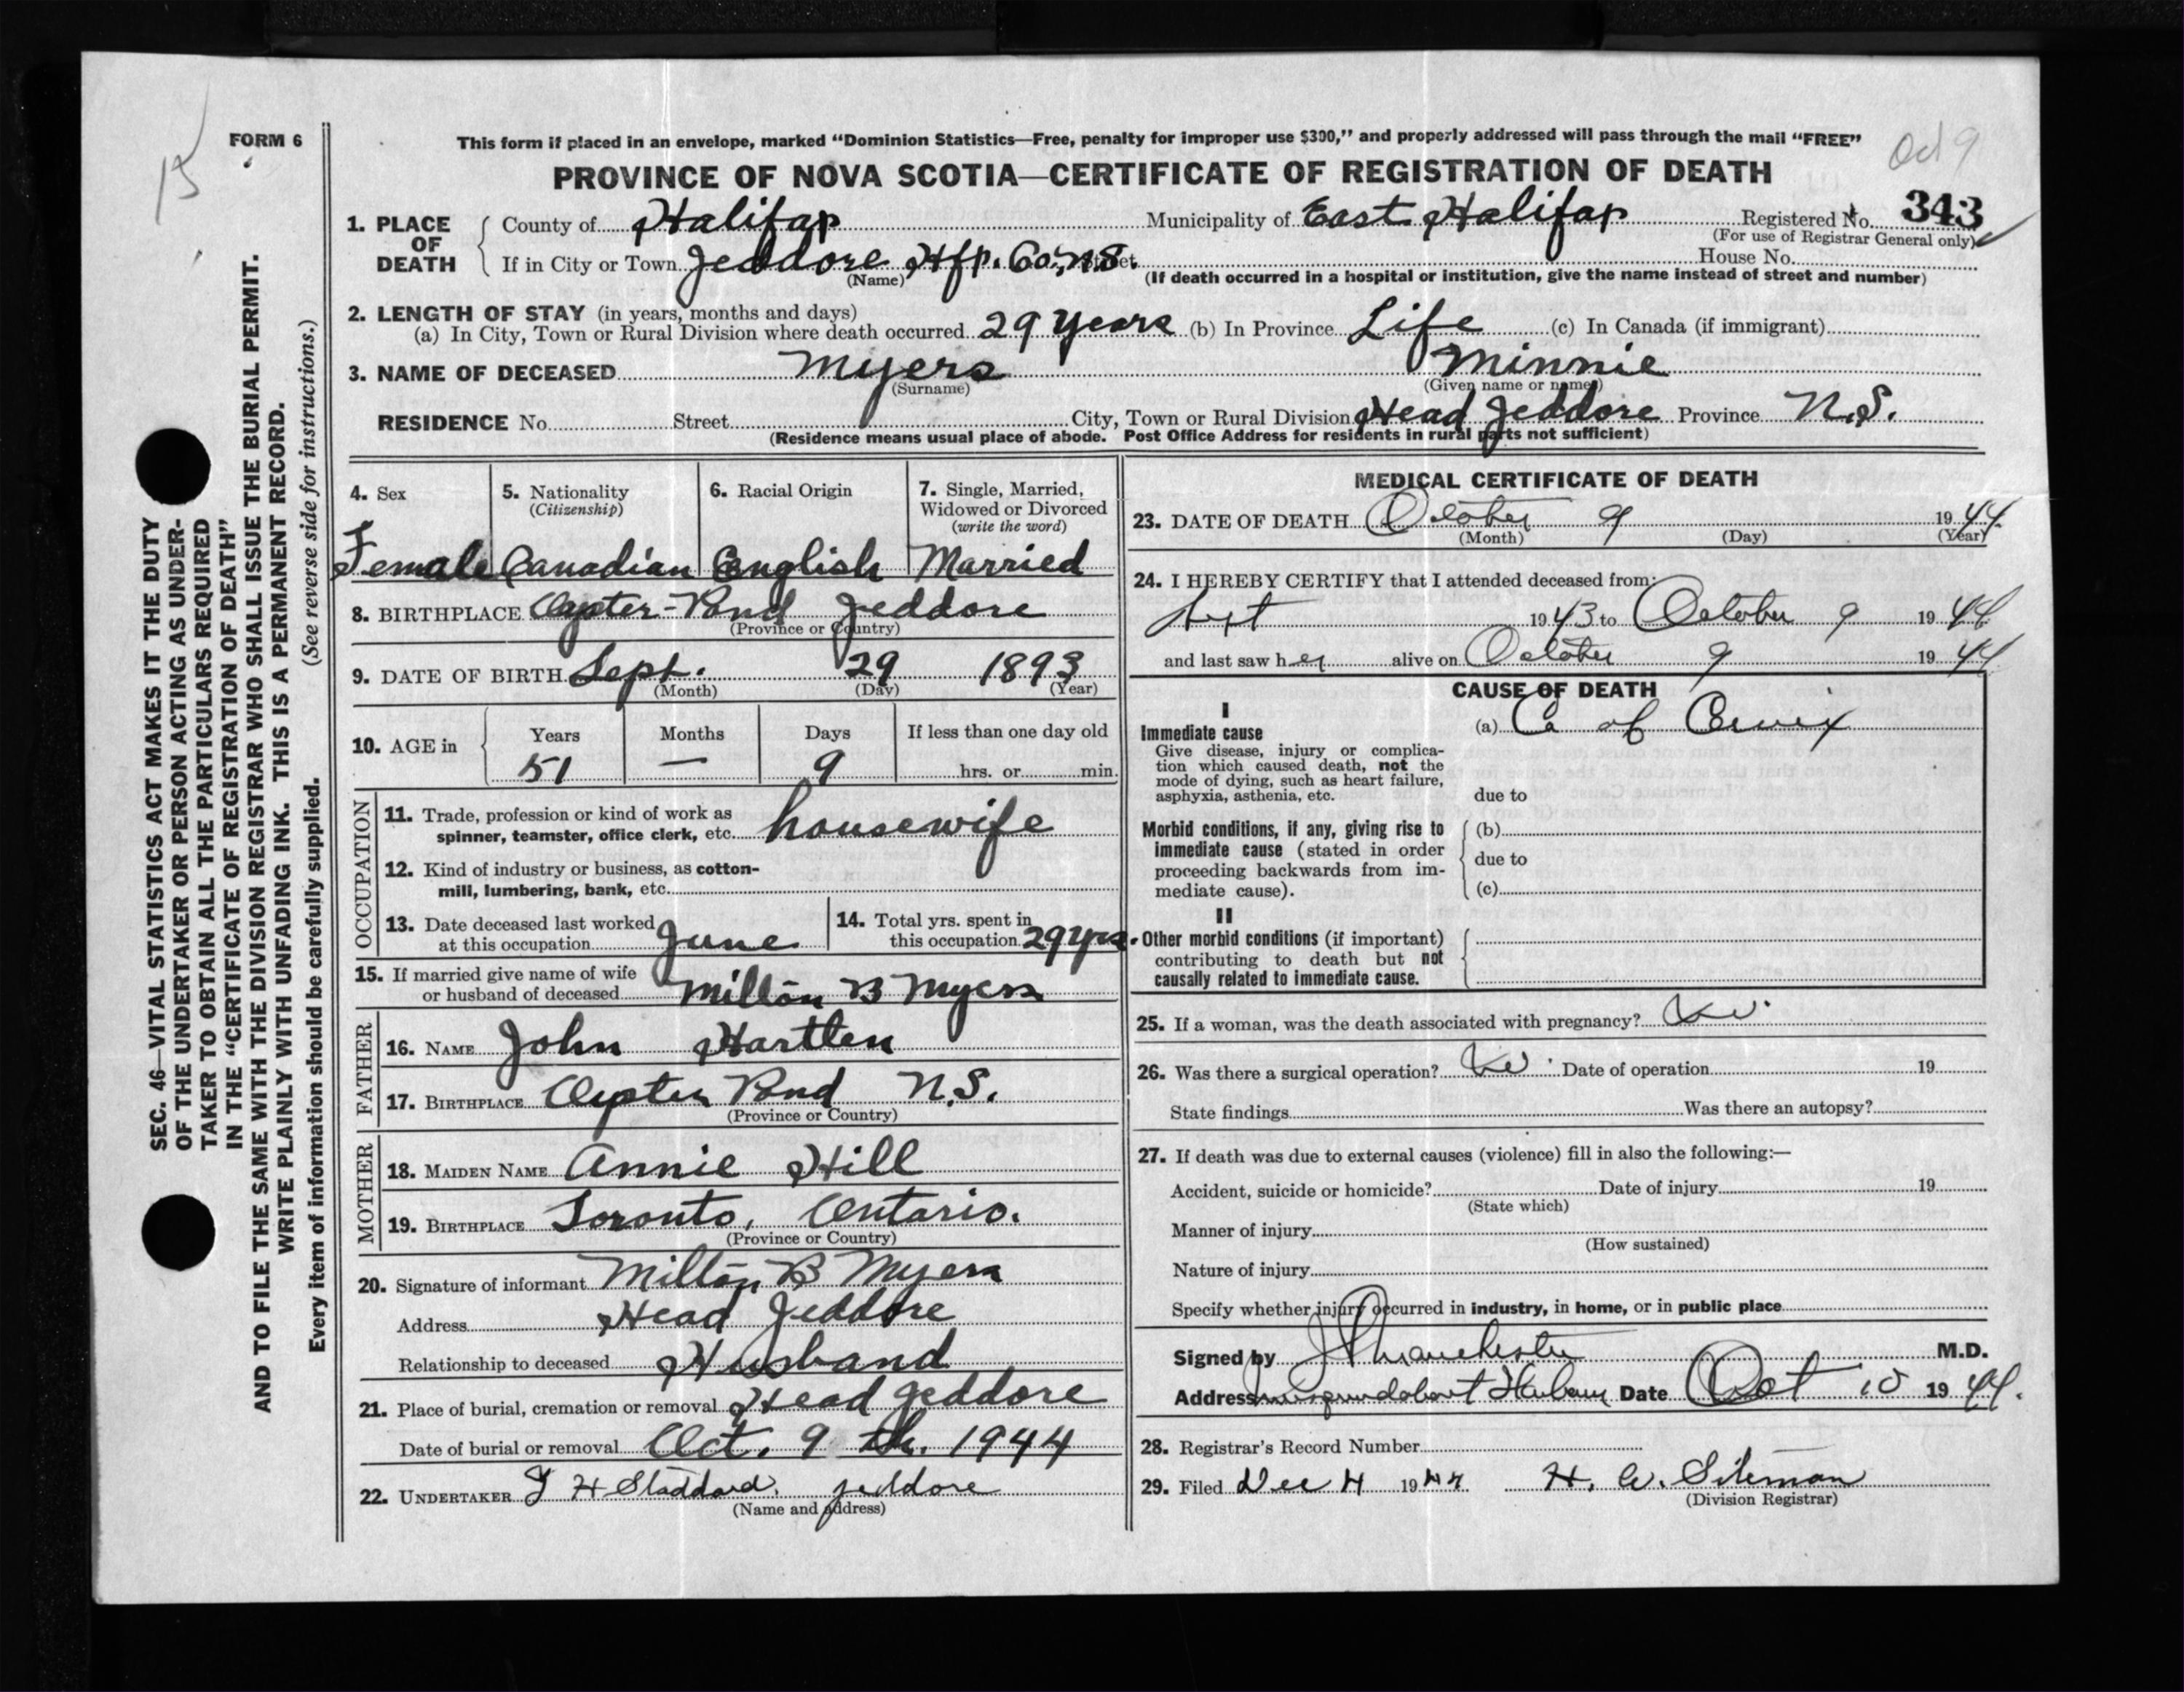 15
FORM 6
This form if placed in an envelope, marked "Dominion Statistics—Free, penalty for improper use $300," and properly addressed will pass through the mail "FREE"
Oct 9
PROVINCE OF NOVA SCOTIA—CERTIFICATE OF REGISTRATION OF DEATH
1. PLACE OF DEATH County of Halifax Municipality of East Halifax Registered No. 343
(For use of Registrar General only)
If in City or Town Jeddore Hfx. Co. N.S. Street House No.
(Name) (If death occurred in a hospital or institution, give the name instead of street and number)
2. LENGTH OF STAY (in years, months and days)
(a) In City, Town or Rural Division where death occurred 29 years (b) In Province Life (c) In Canada (if immigrant)
3. NAME OF DECEASED Myers Minnie
(Surname) (Given name or names)
RESIDENCE No. Street City, Town or Rural Division Head Jeddore Province N.S.
(Residence means usual place of abode. Post Office Address for residents in rural parts not sufficient)
4. Sex 5. Nationality 6. Racial Origin 7. Single, Married,
(Citizenship) Widowed or Divorced
(write the word)
Female Canadian English Married
8. BIRTHPLACE Oyster-Pond Jeddore
(Province or Country)
9. DATE OF BIRTH Sept. 29 1893
(Month) (Day) (Year)
10. AGE in Years Months Days If less than one day old
51 — 9 hrs. or min.
OCCUPATION
11. Trade, profession or kind of work as
spinner, teamster, office clerk, etc. housewife
12. Kind of industry or business, as cotton-
mill, lumbering, bank, etc.
13. Date deceased last worked
at this occupation June
14. Total yrs. spent in
this occupation 29 yrs.
15. If married give name of wife
or husband of deceased Milton B Myers
FATHER
16. NAME John Hartlen
17. BIRTHPLACE Oyster Pond N.S.
(Province or Country)
MOTHER
18. MAIDEN NAME Annie Hill
19. BIRTHPLACE Toronto, Ontario.
(Province or Country)
20. Signature of informant Milton B Myers
Address Head Jeddore
Relationship to deceased Husband
21. Place of burial, cremation or removal Head Jeddore
Date of burial or removal Oct. 9 th. 1944
22. UNDERTAKER H Stoddard. Jeddore
(Name and address)
MEDICAL CERTIFICATE OF DEATH
23. DATE OF DEATH October 9 1944
(Month) (Day) (Year)
24. I HEREBY CERTIFY that I attended deceased from:
Sept 1943 to October 9 1944
and last saw her alive on October 9 1944
CAUSE OF DEATH
I
Immediate cause (a) Ca of Cervix
Give disease, injury or complica-
tion which caused death, not the
mode of dying, such as heart failure,
asphyxia, asthenia, etc. due to
Morbid conditions, if any, giving rise to (b)
immediate cause (stated in order due to
proceeding backwards from im-
mediate cause). (c)
II
Other morbid conditions (if important)
contributing to death but not
causally related to immediate cause.
25. If a woman, was the death associated with pregnancy? No
26. Was there a surgical operation? No Date of operation 19
State findings Was there an autopsy?
27. If death was due to external causes (violence) fill in also the following:—
Accident, suicide or homicide? Date of injury 19
(State which)
Manner of injury
(How sustained)
Nature of injury
Specify whether injury occurred in industry, in home, or in public place
Signed by Manchester M.D.
Address Musquodoboit Harbour Date Oct 10 1944.
28. Registrar's Record Number
29. Filed Dec 4 1944 H. W. Siteman
(Division Registrar)
SEC. 46—VITAL STATISTICS ACT MAKES IT THE DUTY
OF THE UNDERTAKER OR PERSON ACTING AS UNDER-
TAKER TO OBTAIN ALL THE PARTICULARS REQUIRED
IN THE "CERTIFICATE OF REGISTRATION OF DEATH"
AND TO FILE THE SAME WITH THE DIVISION REGISTRAR WHO SHALL ISSUE THE BURIAL PERMIT.
WRITE PLAINLY WITH UNFADING INK. THIS IS A PERMANENT RECORD.
Every item of information should be carefully supplied. (See reverse side for instructions.)